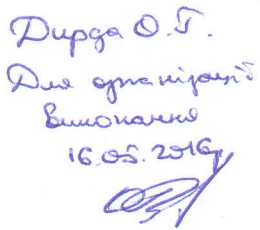 Дирда О.Г.
Для організації
виконання
16.05.2016р